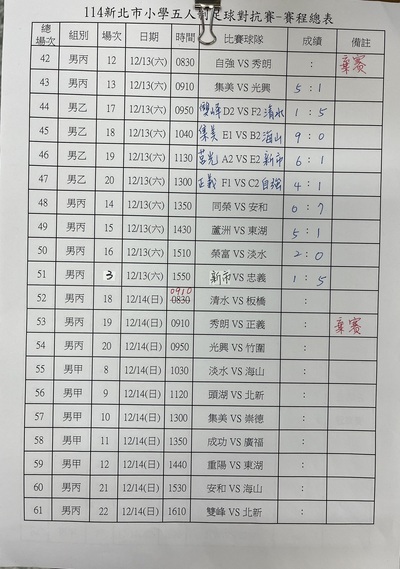 114新北市小學五人制足球對抗賽-賽程總表
總場次 組別 場次 日期 時間 比賽球隊 成績 備註
42 男丙 12 12/13(六) 0830 自強 VS 秀朗 : 棄賽
43 男丙 13 12/13(六) 0910 集美 VS 光興 5 : 1
44 男乙 17 12/13(六) 0950 雙峰 D2 VS F2 清水 1 : 5
45 男乙 18 12/13(六) 1040 集美 E1 VS B2 海山 9 : 0
46 男乙 19 12/13(六) 1130 莒光 A2 VS E2 新市 6 : 1
47 男乙 20 12/13(六) 1300 正義 F1 VS C2 自強 4 : 1
48 男丙 14 12/13(六) 1350 同榮 VS 安和 0 : 7
49 男丙 15 12/13(六) 1430 蘆洲 VS 東湖 5 : 1
50 男丙 16 12/13(六) 1510 榮富 VS 淡水 2 : 0
51 男丙 3 12/13(六) 1550 新市 VS 忠義 1 : 5
0910
52 男丙 18 12/14(日) 0830 清水 VS 板橋 :
53 男丙 19 12/14(日) 0910 秀朗 VS 正義 : 棄賽
54 男丙 20 12/14(日) 0950 光興 VS 竹圍 :
55 男甲 8 12/14(日) 1030 淡水 VS 海山 :
56 男甲 9 12/14(日) 1120 頭湖 VS 北新 :
57 男甲 10 12/14(日) 1300 集美 VS 崇德 :
58 男甲 11 12/14(日) 1350 成功 VS 廣福 :
59 男甲 12 12/14(日) 1440 重陽 VS 東湖 :
60 男丙 21 12/14(日) 1530 安和 VS 海山 :
61 男丙 22 12/14(日) 1610 雙峰 VS 北新 :